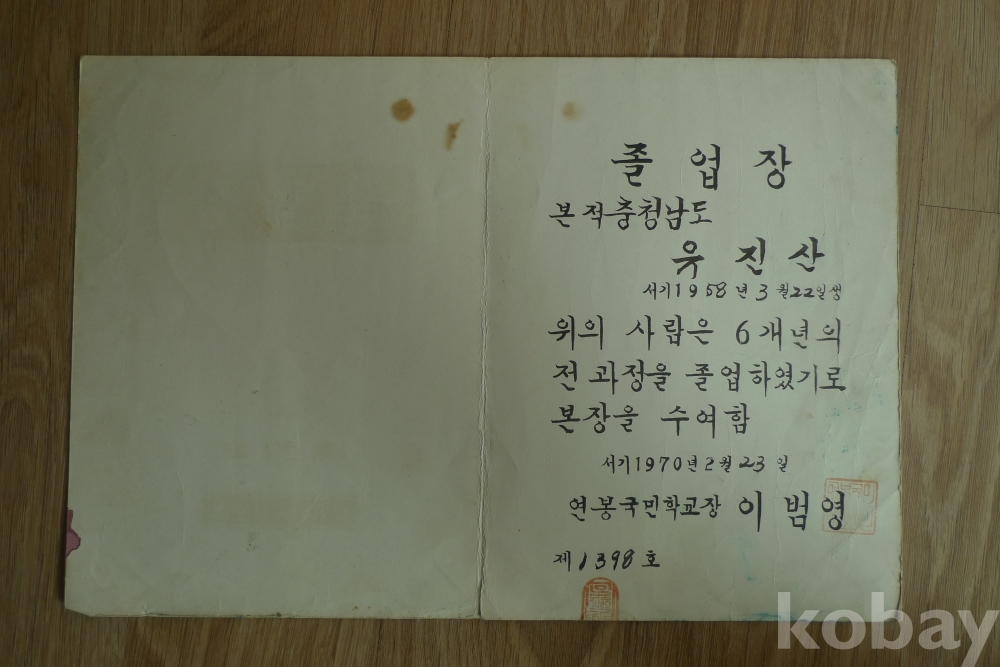 졸업장
본적충청남도
유진산
서기1958년3월22일생
위의 사람은 6개년의
전 과정을 졸업하였기로
본장을 수여함
서기1970년2월23일
연봉국민학교장 이범영
제1398호
kobay